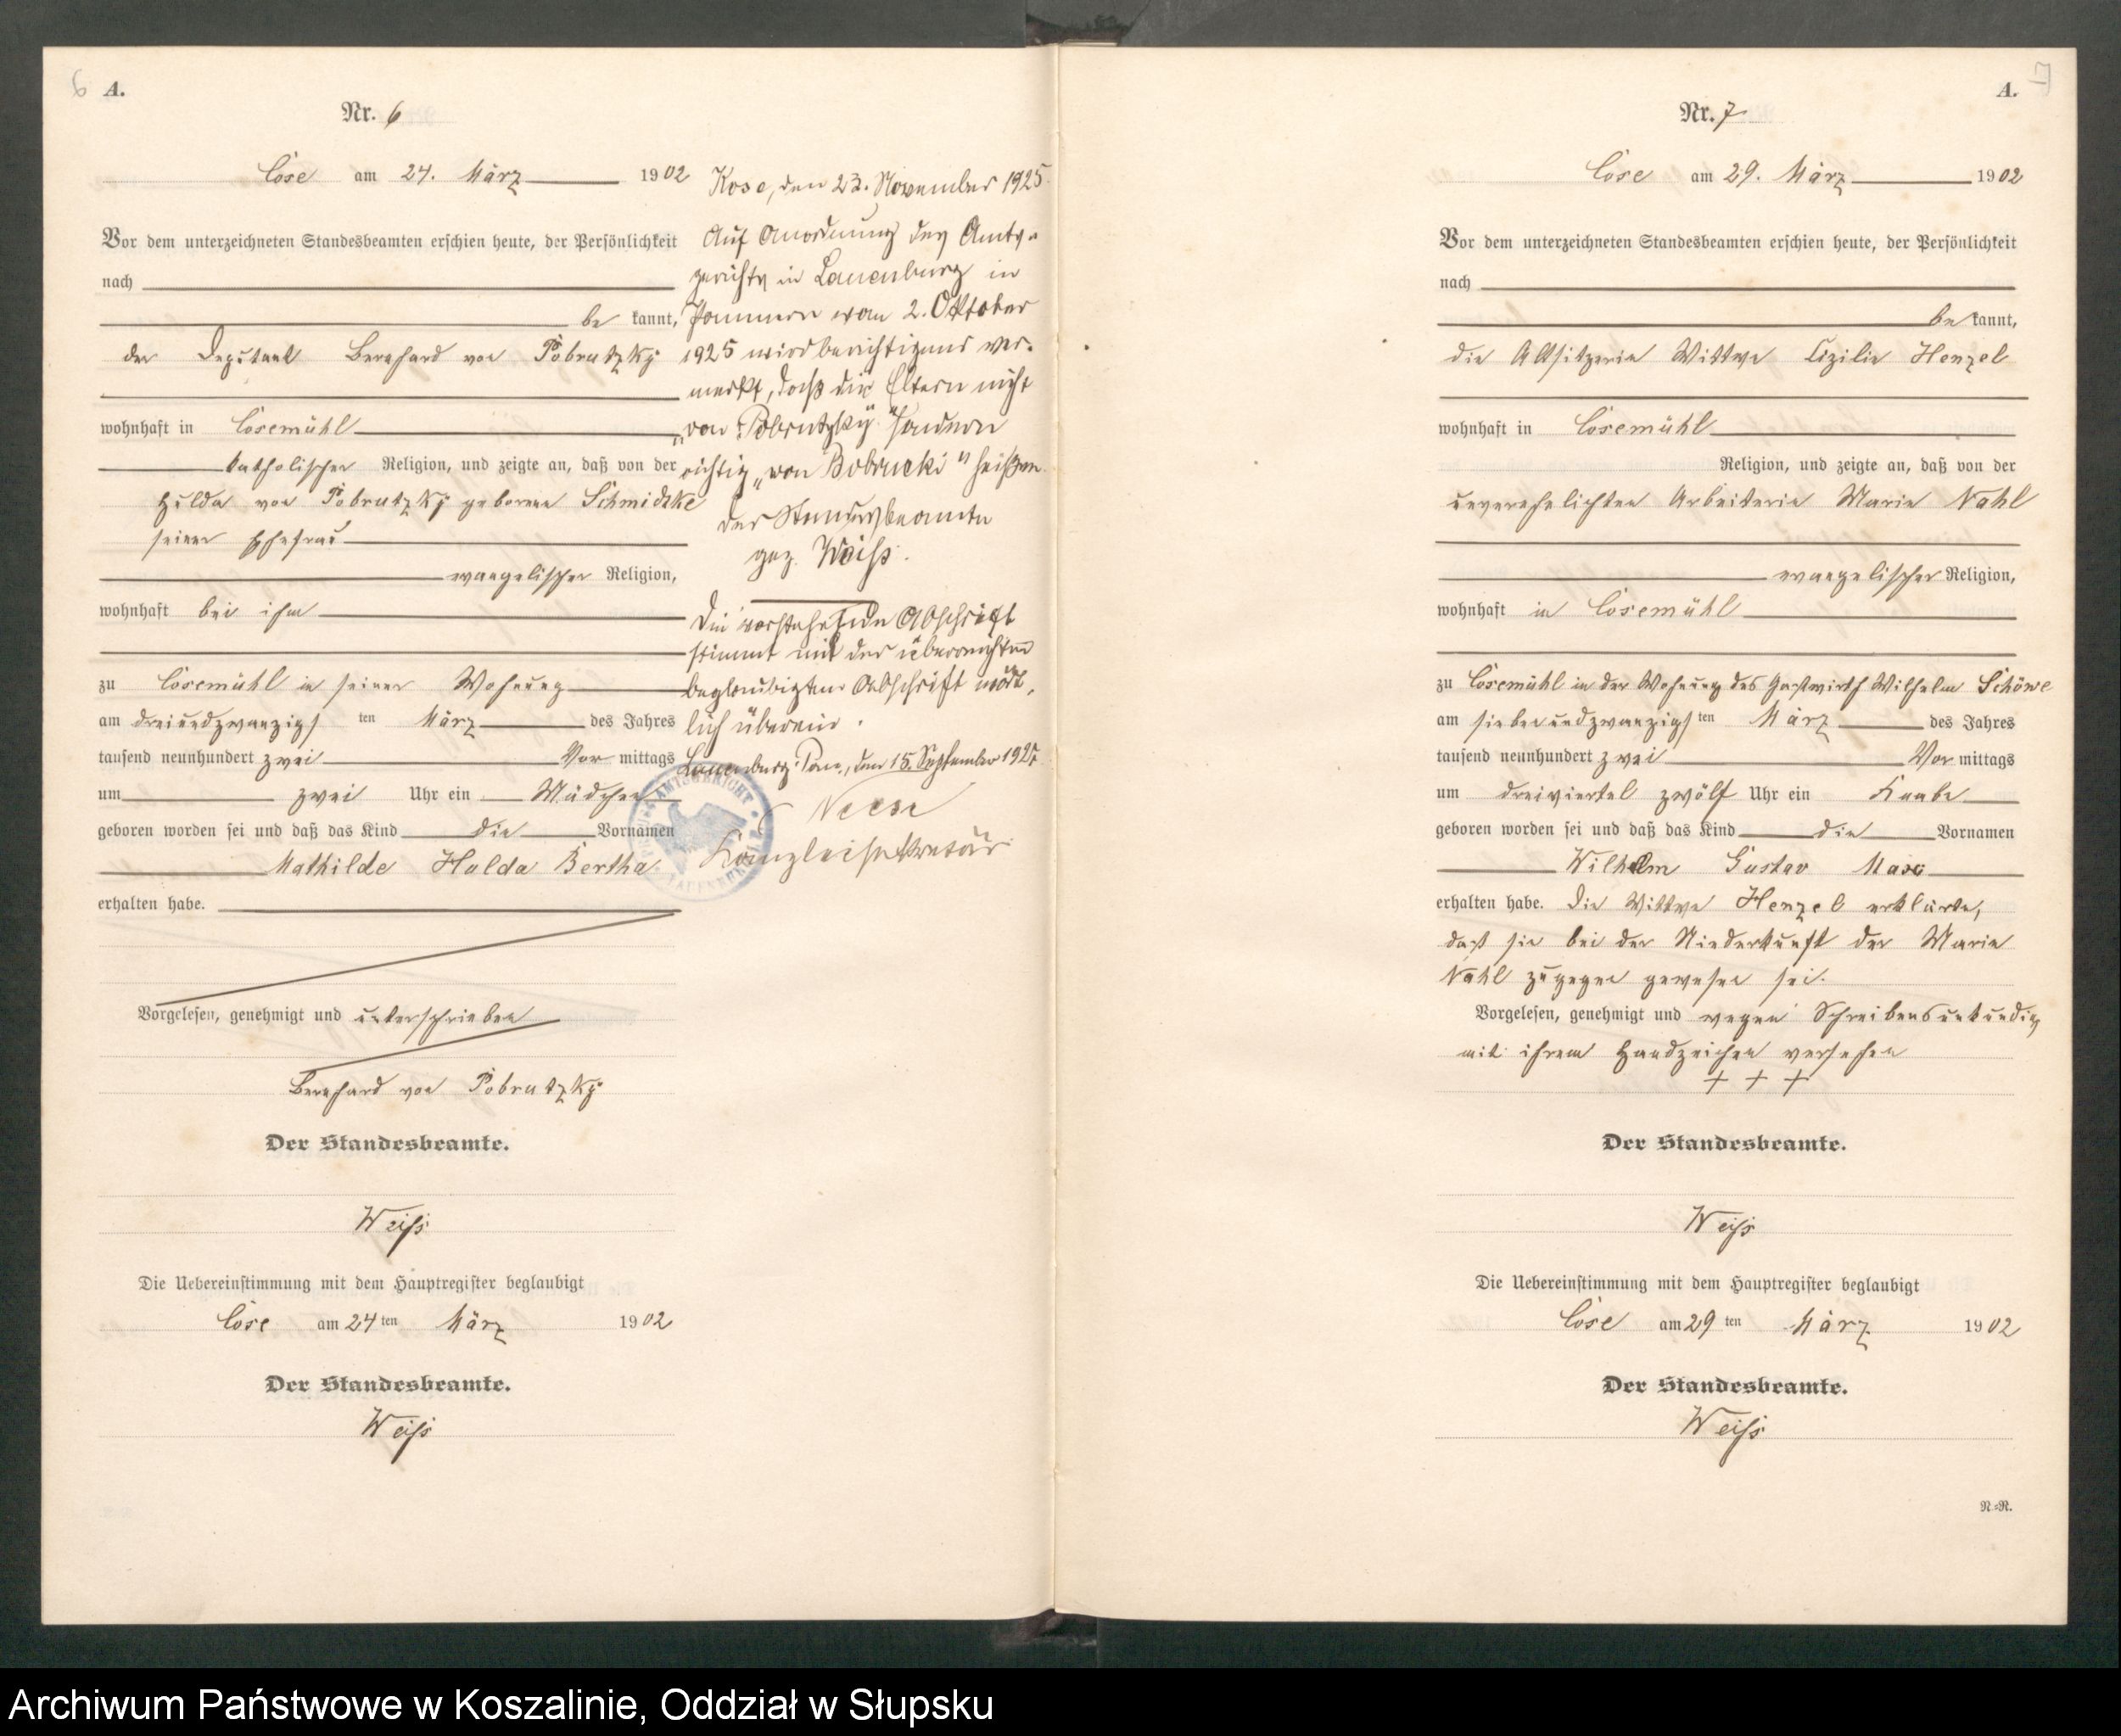 6 A.
Nr. 6
Cose am 24. März 1902
Vor dem unterzeichneten Standesbeamten erschien heute, der Persönlichkeit
nach
be kannt,
der Deputant Bernhard von Pobrutzky
wohnhaft in Cosemühl
katholischer Religion, und zeigte an, daß von der
Hulda von Pobrutzky geborene Schmidtke
seiner Ehefrau
evangelischer Religion,
wohnhaft bei ihm
zu Cosemühl in seiner Wohnung
am dreiundzwanzigsten März des Jahres
tausend neunhundert zwei Vor mittags
um zwei Uhr ein Mädchen
geboren worden sei und daß das Kind die Vornamen
Mathilde Hulda Bertha
erhalten habe.
Vorgelesen, genehmigt und unterschrieben
Bernhard von Pobrutzky
Der Standesbeamte.
Weiß
Die Uebereinstimmung mit dem Hauptregister beglaubigt
Cose am 24 ten März 1902
Der Standesbeamte.
Weiß
Kose, den 23. November 1925
Auf Anordnung des Amts-
gerichts in Lauenburg in
Pommern vom 2. Oktober
1925 wird berichtigend ver-
merkt, daß die Eltern nicht
„von Pobrutzky" sondern
richtig „von Bobrucki" heißen.
Der Standesbeamte
gez. Weiß.
Die vorstehende Abschrift
stimmt mit der überreichten
beglaubigten Abschrift wört-
lich überein.
Lauenburg Pom., den 15. September
AMTSGERICHT
LAUENBURG
Kanzleisekretär
7
A.
Nr. 7
Cose am 29. März 1902
Vor dem unterzeichneten Standesbeamten erschien heute, der Persönlichkeit
nach
be kannt,
die Altsitzerin Wittwe Cizilie Henzel
wohnhaft in Cosemühl
Religion, und zeigte an, daß von der
unverehelichten Arbeiterin Marie Nahl
evangelischer Religion,
wohnhaft in Cosemühl
zu Cosemühl in der Wohnung des Gastwirth Wilhelm Schöwe
am siebenundzwanzigsten März des Jahres
tausend neunhundert zwei Vor mittags
um dreiviertel zwölf Uhr ein Knabe
geboren worden sei und daß das Kind die Vornamen
Wilhelm Gustav Max
erhalten habe. Die Wittwe Henzel erklärte,
daß sie bei der Niederkunft der Marie
Nahl zugegen gewesen sei.
Vorgelesen, genehmigt und wegen Schreibensunkundig
mit ihrem Handzeichen versehen
+ + +
Der Standesbeamte.
Weiß
Die Uebereinstimmung mit dem Hauptregister beglaubigt
Cose am 29 ten März 1902
Der Standesbeamte.
Weiß
N=R.
Archiwum Państwowe w Koszalinie, Oddział w Słupsku